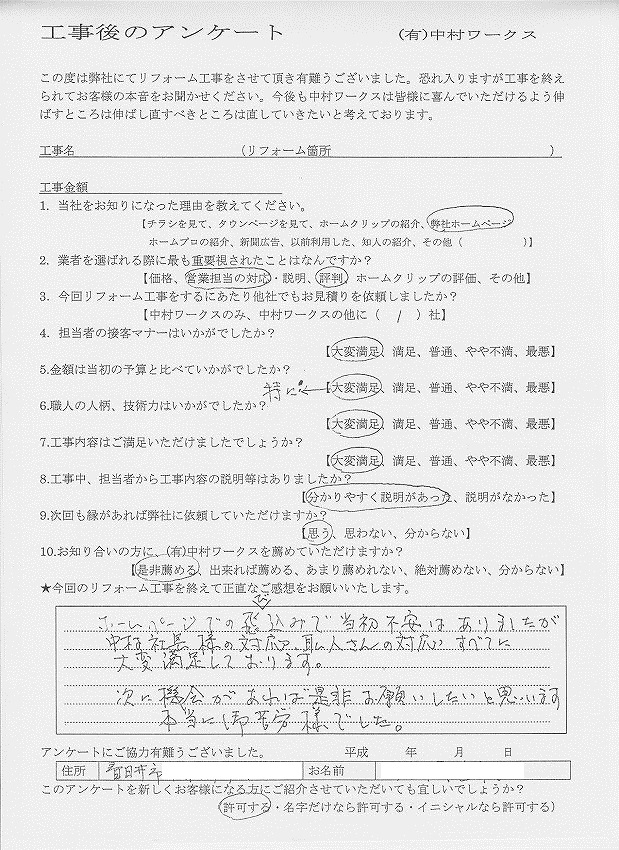 工事後のアンケート (有)中村ワークス
この度は弊社にてリフォーム工事をさせて頂き有難うございました。恐れ入りますが工事を終え
られてお客様の本音をお聞かせください。今後も中村ワークスは皆様に喜んでいただけるよう伸
ばすところは伸ばし直すべきところは直していきたいと考えております。
工事名 (リフォーム箇所 )
工事金額
1. 当社をお知りになった理由を教えてください。
【チラシを見て、タウンページを見て、ホームクリップの紹介、弊社ホームページ
ホームプロの紹介、新聞広告、以前利用した、知人の紹介、その他( )】
2. 業者を選ばれる際に最も重要視されたことはなんですか?
【価格、営業担当の対応・説明、評判、ホームクリップの評価、その他】
3. 今回リフォーム工事をするにあたり他社でもお見積りを依頼しましたか?
【中村ワークスのみ、中村ワークスの他に( / )社】
4. 担当者の接客マナーはいかがでしたか?
【大変満足、満足、普通、やや不満、最悪】
5.金額は当初の予算と比べていかがでしたか?
特に 【大変満足、満足、普通、やや不満、最悪】
6.職人の人柄、技術力はいかがでしたか?
【大変満足、満足、普通、やや不満、最悪】
7.工事内容はご満足いただけましたでしょうか?
【大変満足、満足、普通、やや不満、最悪】
8.工事中、担当者から工事内容の説明等はありましたか?
【分かりやすく説明があった、説明がなかった】
9.次回も縁があれば弊社に依頼していただけますか?
【思う、思わない、分からない】
10.お知り合いの方に、(有)中村ワークスを薦めていただけますか?
【是非薦める、出来れば薦める、あまり薦めれない、絶対薦めない、分からない】
★今回のリフォーム工事を終えて正直なご感想をお願いいたします。
ホームページでの飛込みで当初不安はありましたが
中村社長様の対応、職人さんの対応、すべてに
大変満足しております。
次に機会があれば是非お願いしたいと思います
本当に御苦労様でした。
アンケートにご協力有難うございました。 平成 年 月 日
住所 春日井市 お名前
このアンケートを新しくお客様になる方にご紹介させていただいても宜しいでしょうか?
(許可する・名字だけなら許可する・イニシャルなら許可する)